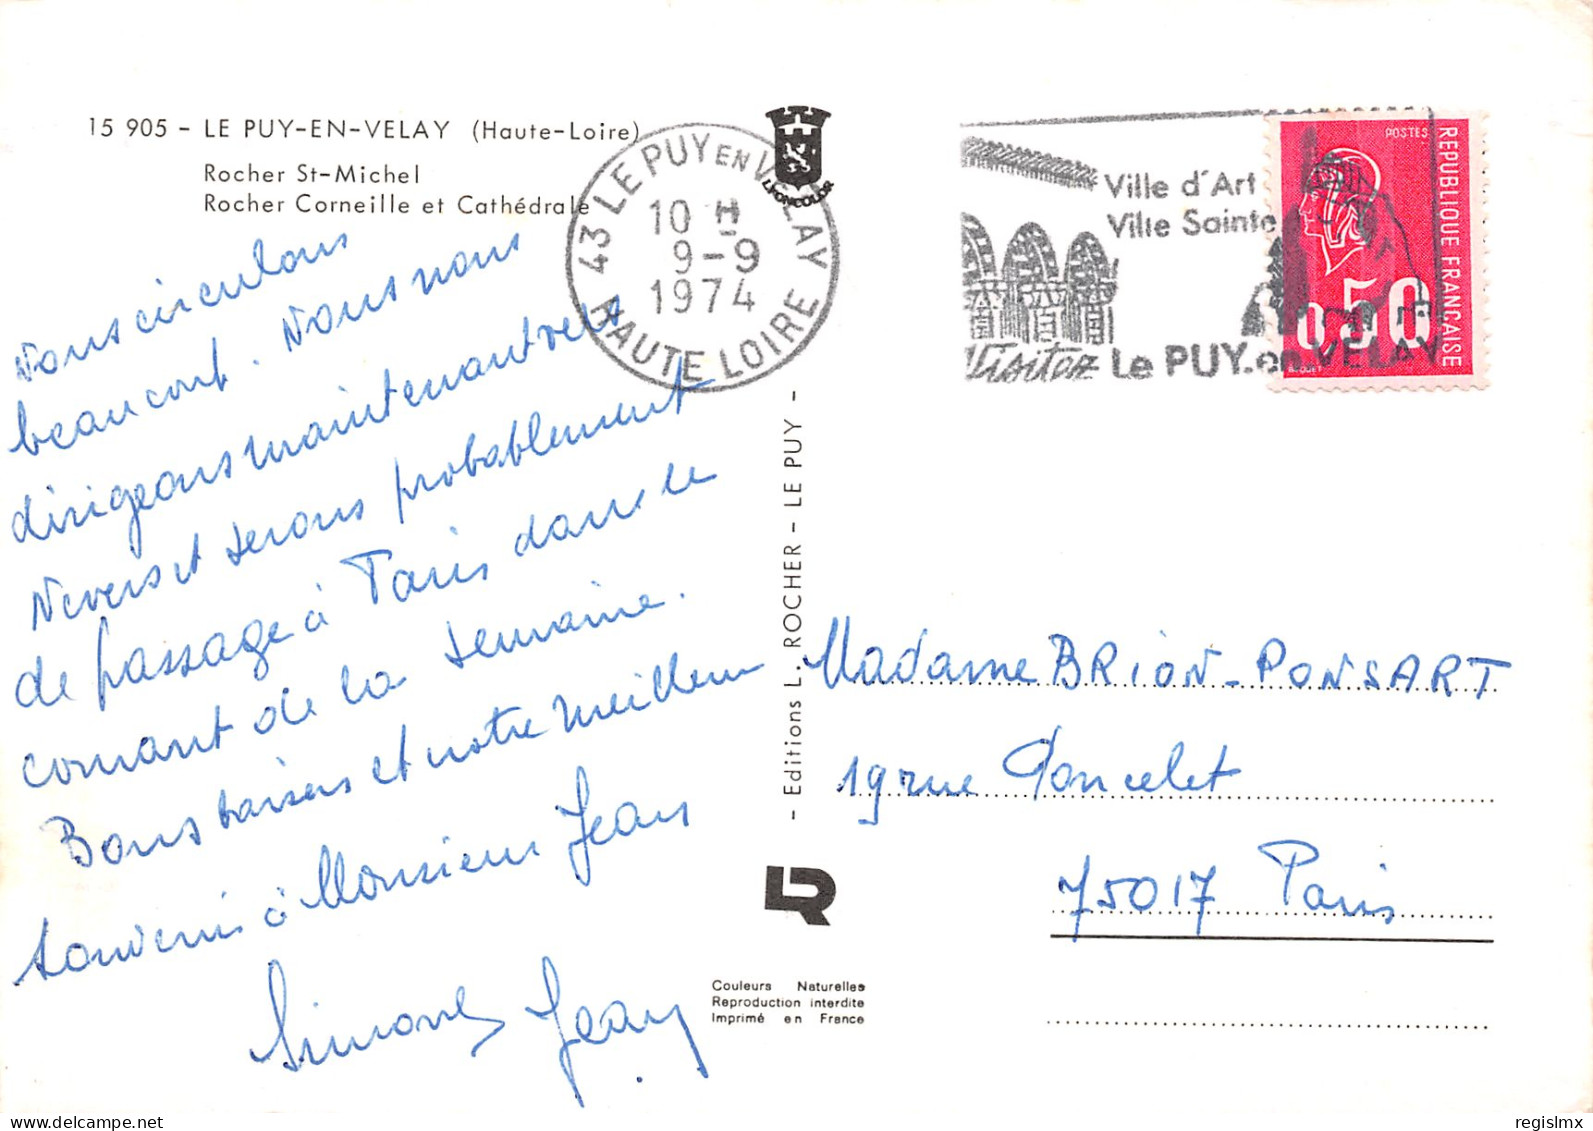 15 905 - LE PUY-EN-VELAY (Haute-Loire)
Rocher St-Michel
Rocher Corneille et Cathédrale
LYONCOLOR
43 LE PUY EN VELAY
10 H
9-9
1974
HAUTE LOIRE
Ville d'Art
Ville Sainte
Visitez Le PUY.en.VELAY
POSTES
REPUBLIQUE FRANÇAISE
0,50
Nous circulons
beaucoup. Nous nous
dirigeons maintenant vers
Nevers et serons probablement
de passage à Paris dans le
courant de la semaine.
Bons baisers et notre meilleur
souvenir à Monsieur Jean
Simone Jean
- Editions L. ROCHER - LE PUY -
LR
Couleurs Naturelles
Reproduction interdite
Imprimé en France
Madame BRION-PONSART
19 rue Poncelet
75017 Paris
www.delcampe.net
regislmx